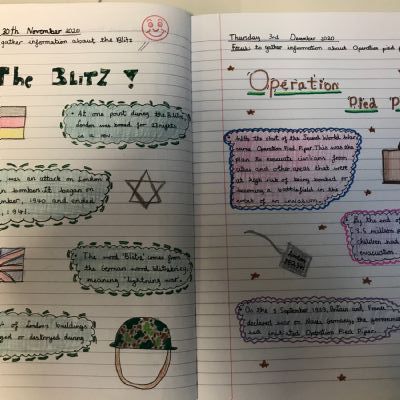 30th November 2020
gather information about the Blitz
The Blitz!
At one point during the Blitz,
London was bombed for
in a row.
was an attack on London
bomber. It began on
1940 and ended
1941.
The word 'Blitz' comes from
the German word blitzkrieg,
meaning 'lightning war'.
of London's buildings
or destroyed during
Thursday 3rd December 2020
Focus: to gather information about Operation pied
Operation
Pied P
With the start of the Second World War
came Operation Pied Piper. This was the
plan to evacuate civilians from
cities and other areas that were
at high risk of being bombed or
becoming a battlefield in the
event of an invasion.
By the end of
3.5 million
children had
evacuation.
On the 3 September 1939, Britain and France
declared war on Nazi Germany, the government
initiated Operation Pied Piper.